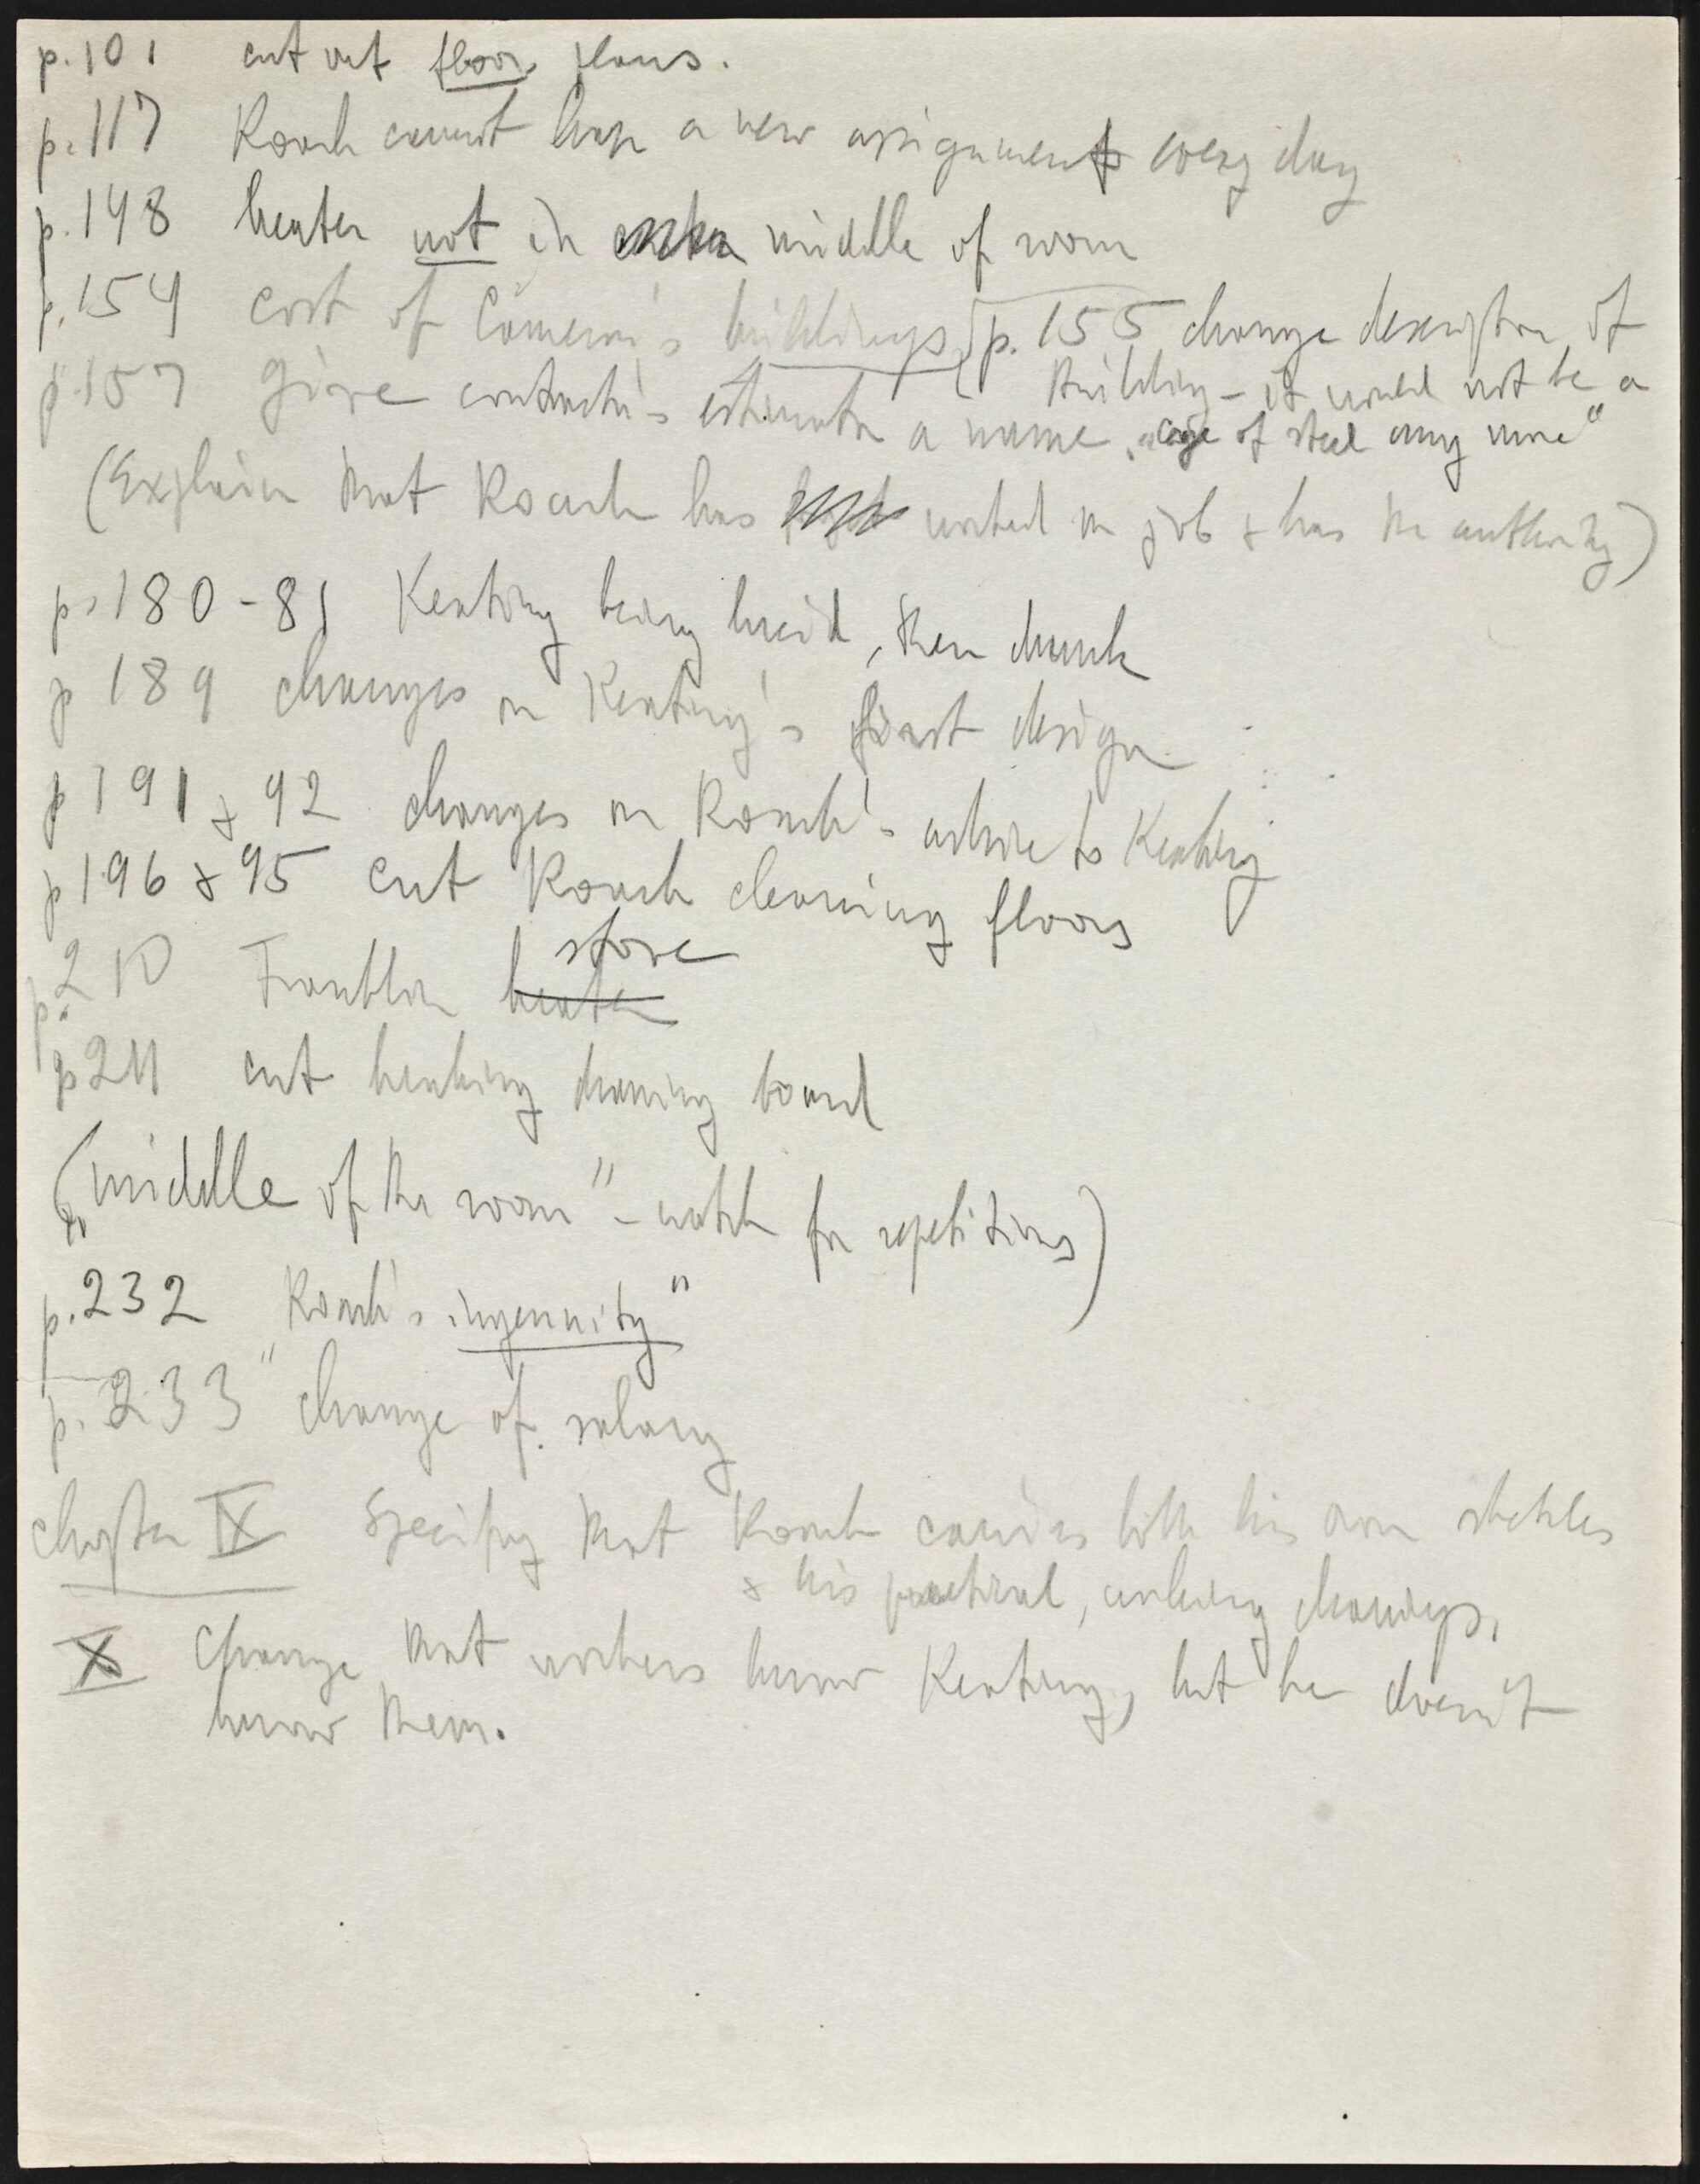 p. 101 cut out floor plans.
p. 117 Roark cannot have a new assignment every day
p. 148 heater not in center middle of room
p. 154 cost of Cameron's buildings
p. 155 change description of
Building – it would not be a
"cage of steel any more"
p. 157 give contractor's estimator a name
(Explain that Roark has worked on job & has the authority)
p. 180-81 Keating being lucid, then drunk
p 189 changes on Keating's first design
p 191 & 92 changes on Roark's advice to Keating
p 196 & 95 cut Roark cleaning floors
stove
p. 210 Franklin heater
p 211 cut heating drawing board
("middle of the room" – watch for repetitions)
p. 232 Roark's "ingenuity"
p. 233 change of salary
Chapter IX Specify that Roark carries both his own sketches
& his practical, working drawings.
X Change that workers know Keating, but he doesn't
know them.